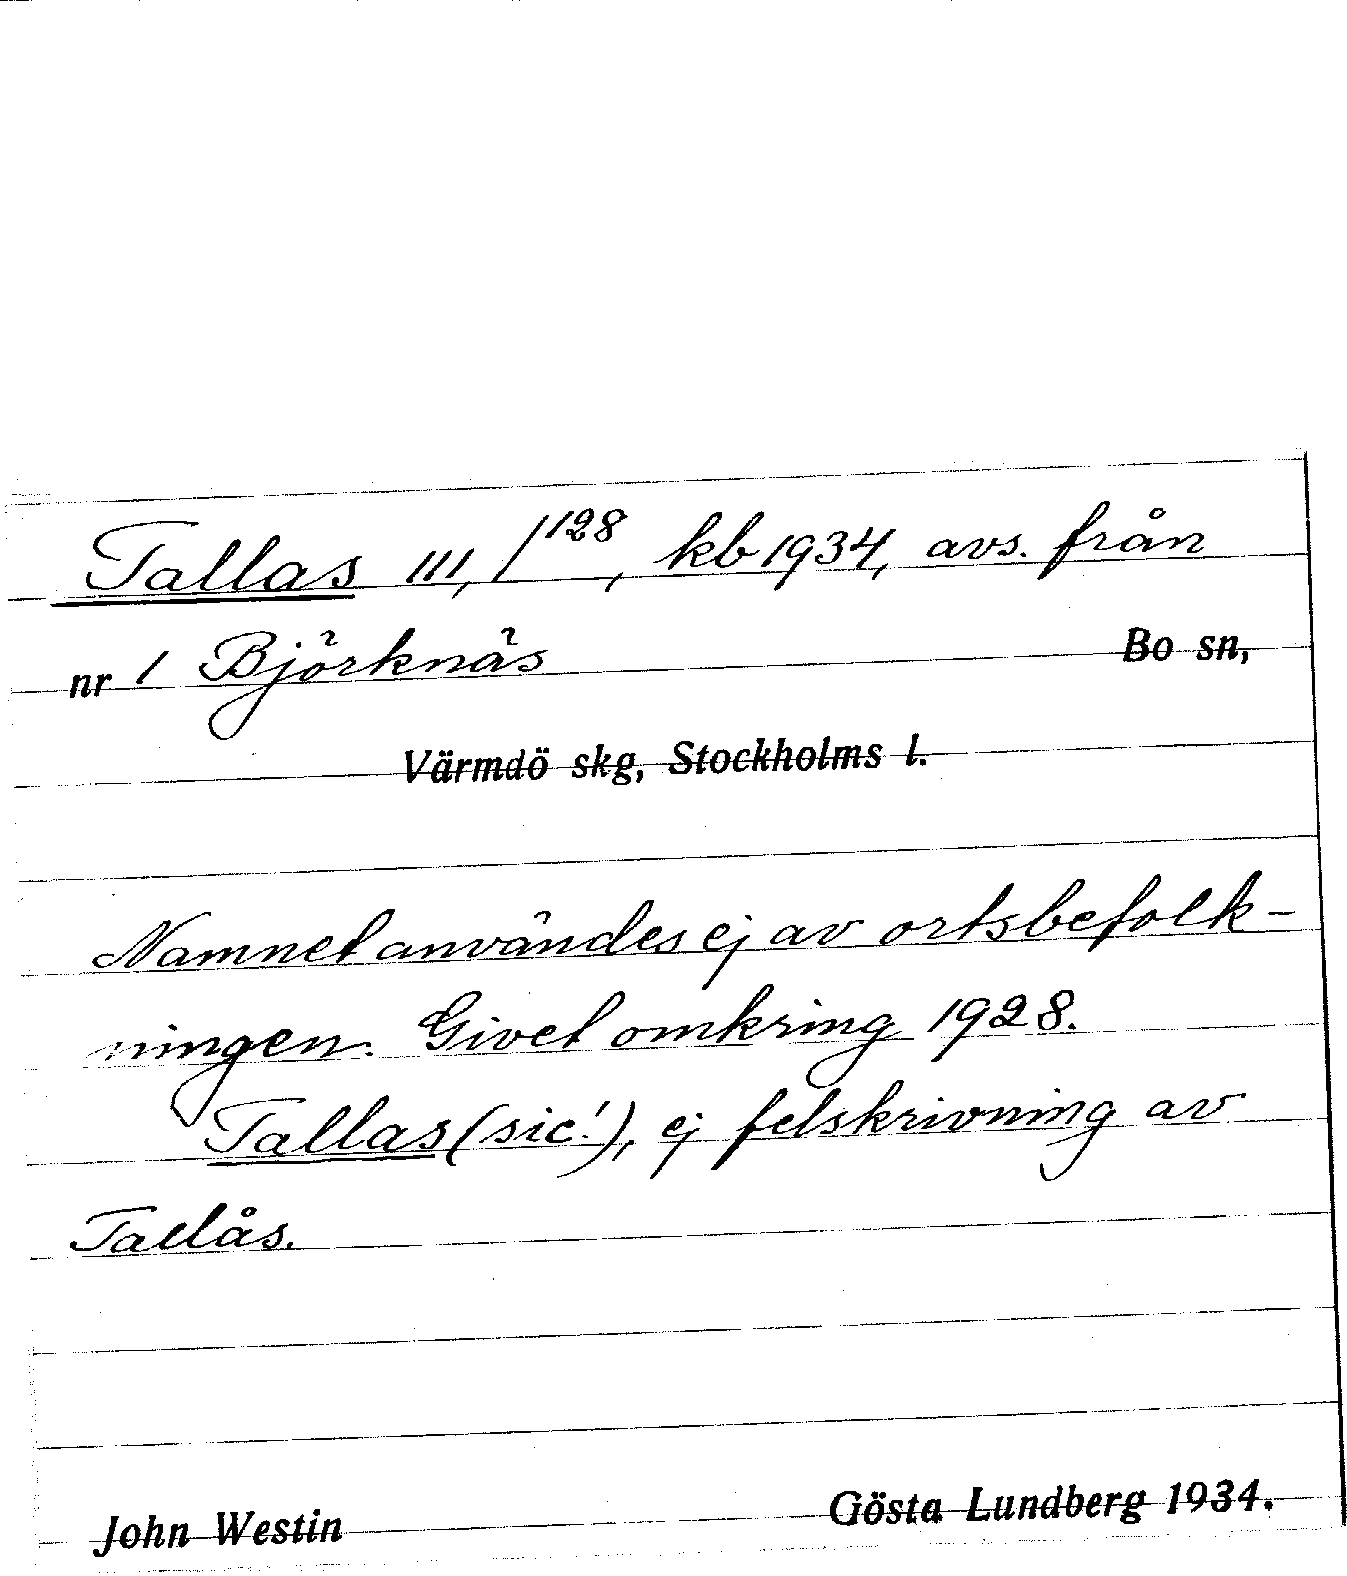 Tallas III, 1¹²⁸, kb 1934, avs. från
nr 1 Björknäs Bo sn,
Värmdö skg, Stockholms l.
Namnet användes ej av ortsbefolk-
ningen. Givet omkring 1928.
Tallas (sic!), ej felskrivning av
Tallås.
John Westin Gösta Lundberg 1934.